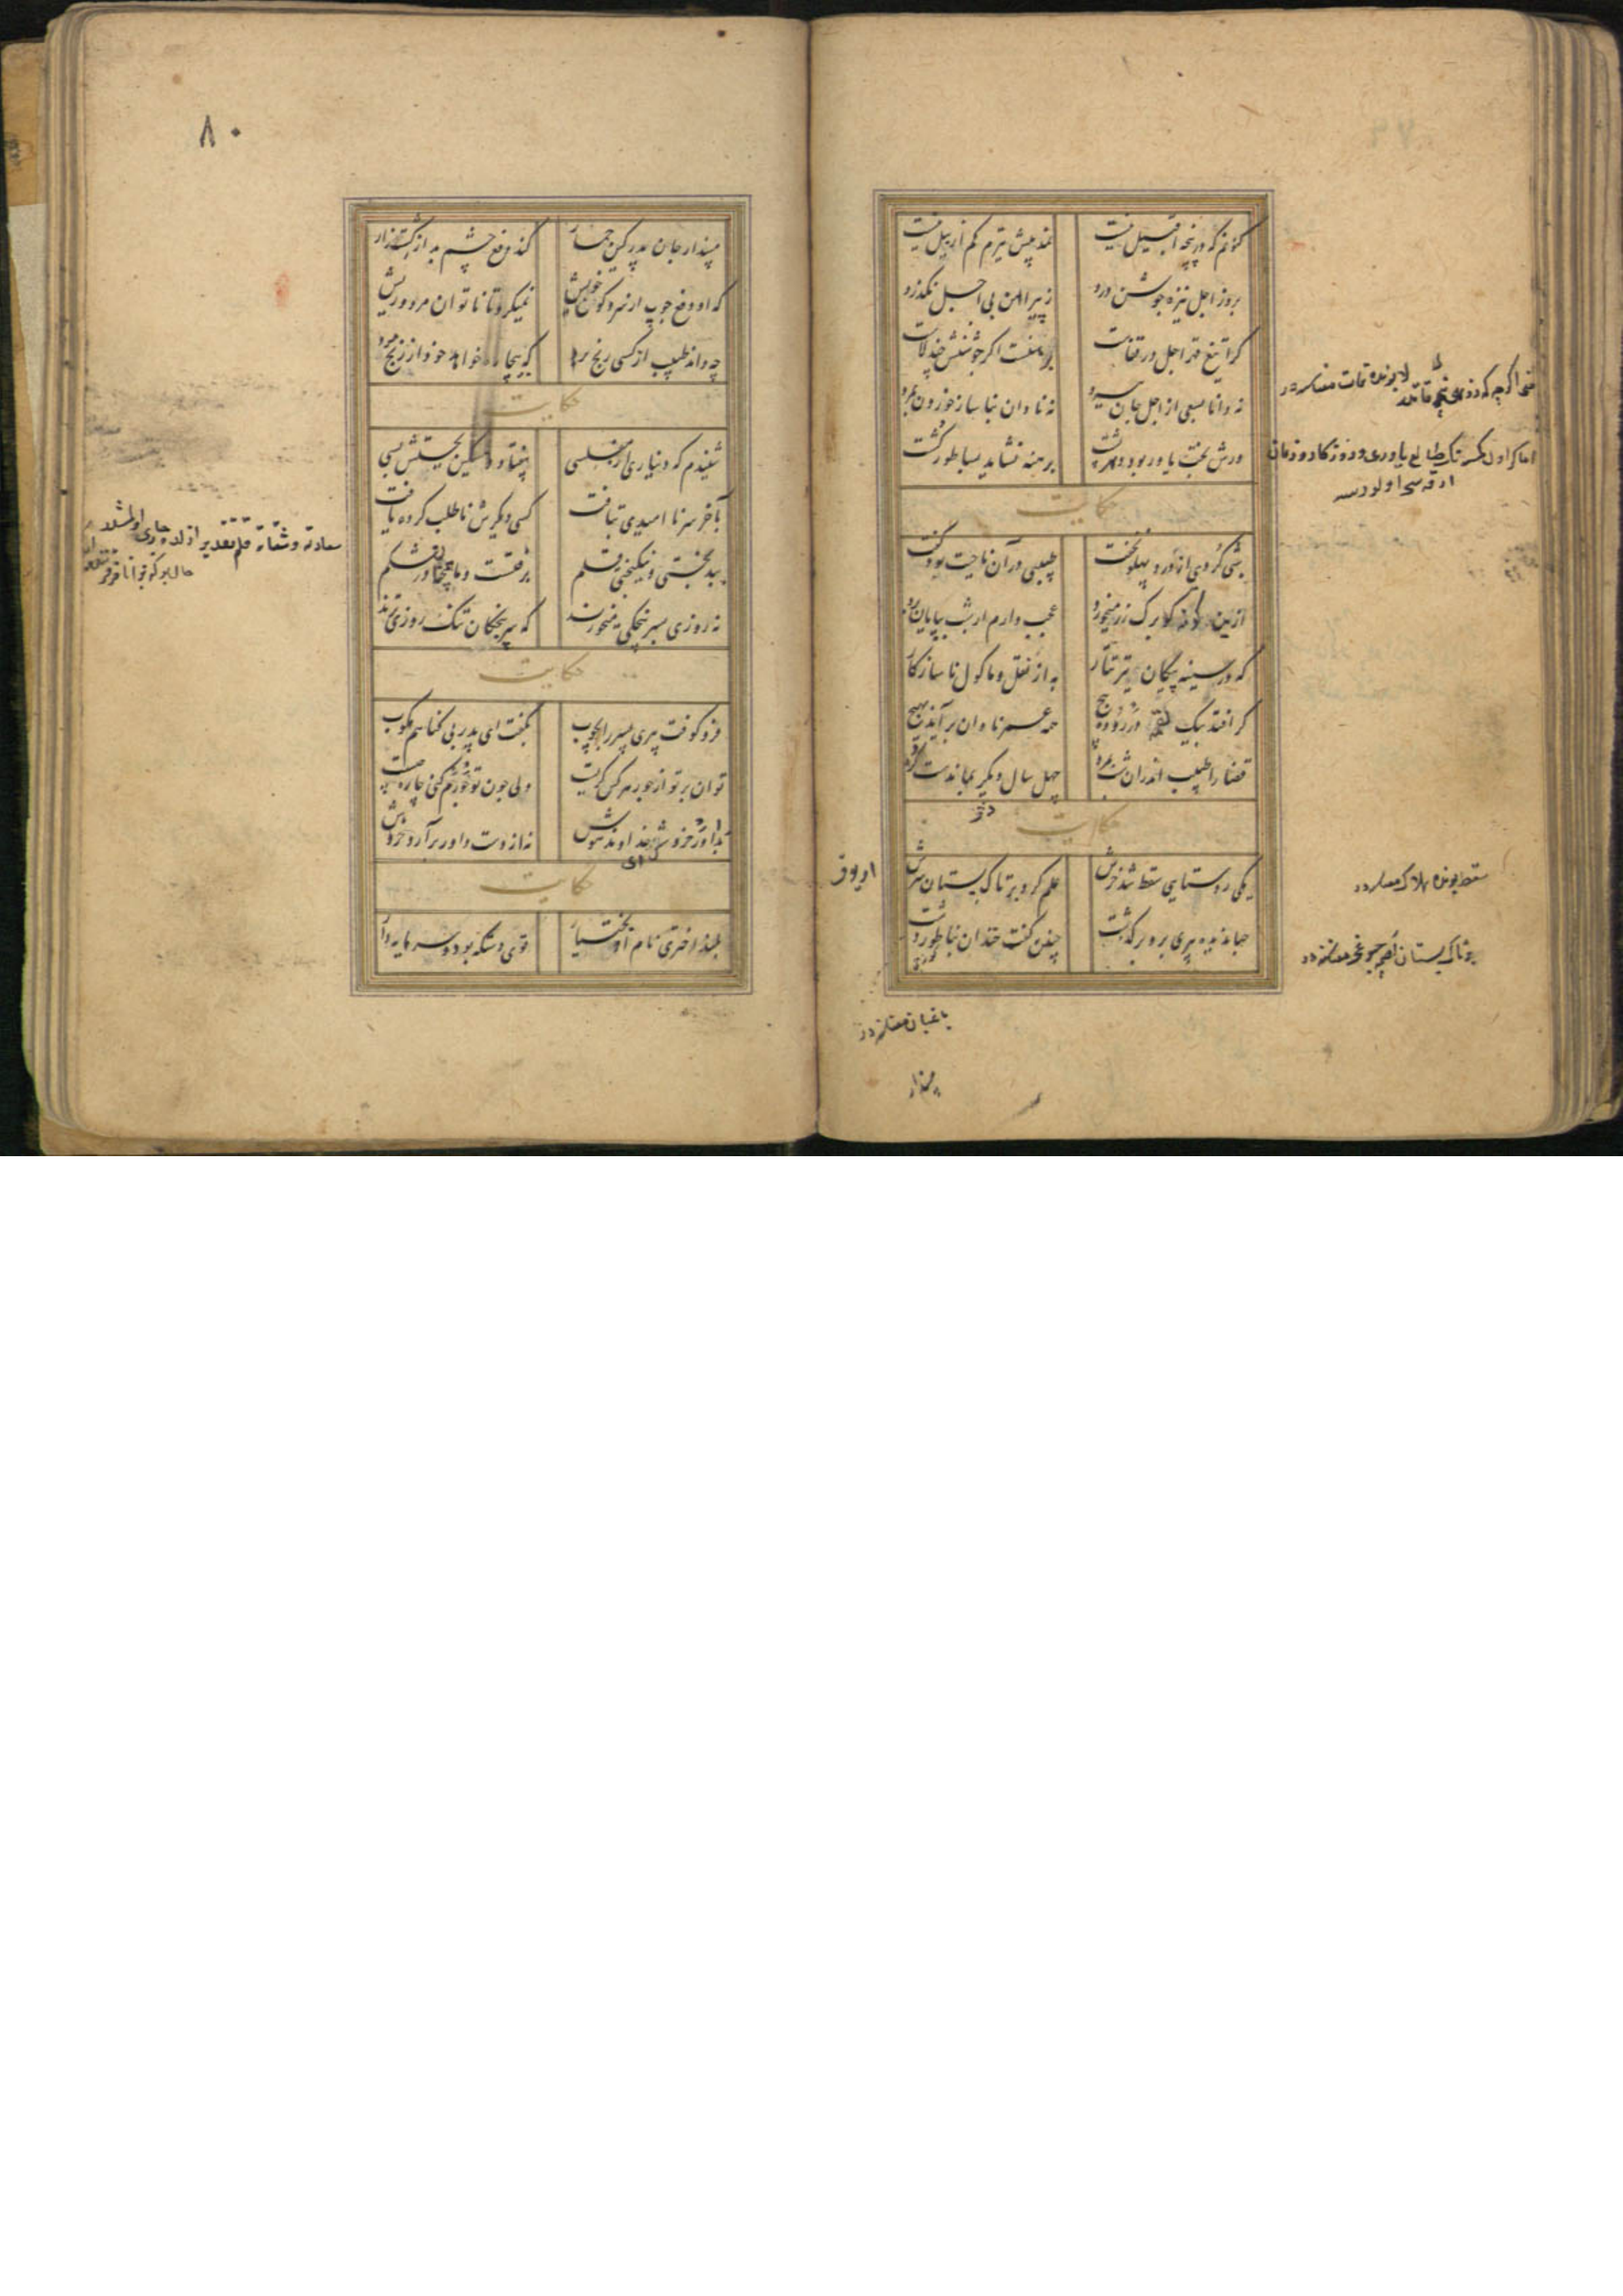 کنونم که در پنجه اقبیل نیست
نمد پیش تیرم کم از بیل نیست
بروز اجل نیزه جوشن درد
ز پیراهن بی اجل نگذرد
کرا تیغ قهر اجل در قفاست
برهنست اگر جوشنش چند لاست
ورش بخت یاور بود دهر پشت
برهنه نشاید بساطور کشت
نه دانا بسعی از اجل جان ببرد
نه نادان بناساز خوردن بمرد
حکایت
شبی کردی از درد پهلو نخفت
طبیبی در آن ناحیت بود گفت
ازین کونه کو برک رز میخورد
عجب دارم ار شب بپایان برد
که در سینه پیکان تیر تتار
به از نقل ماکول ناسازکار
کر افتد بیک لقمه در روده پیچ
همه عمر نادان برآید بهیچ
قضا را طبیب اندران شب بمرد
چهل سال دیگر بماندست کرد
حکایت
یکی روستایی سقط شد خرش
علم کرد بر تاک بستان سرش
جهاندیده پیری برو برگذشت
چنین گفت خندان بناطور دشت
سقط بونده هلاک معناسنه در
باغبان معناسنه در
پندار
۸۰
مپندار جان پدر کین حمار
کند دفع چشم بد از کشتزار
که او دفع چوب از سر و کون خویش
نمیکرد تا ناتوان مرد و ریش
چه داند طبیب از کسی رنج برد
که بیچاره خواهد خود از رنج مرد
حکایت
شنیدم که دیناری از مفلسی
بیفتاد و مسکین بجستش بسی
بآخر سر ناامیدی بتافت
کسی دیگرش ناطلب کرده یافت
ببدبختی و نیکبختی قلم
برفتست و ما همچنان در شکم
نه روزی بسرپنجکی میخورند
که سرپنجکان تنک روزی ترند
حکایت
فرو کوفت پیری پسر را بچوب
بگفت ای پدر بی کناهم مکوب
توان بر تو از جور مردم کریست
ولی چون تو جورم کنی چاره چیست
بداور خروش ای خداوند هوش
نه از دست داور برآرد خروش
حکایت
بلند اختری نام او بختیار
قوی دستکه بود و سرمایه دار